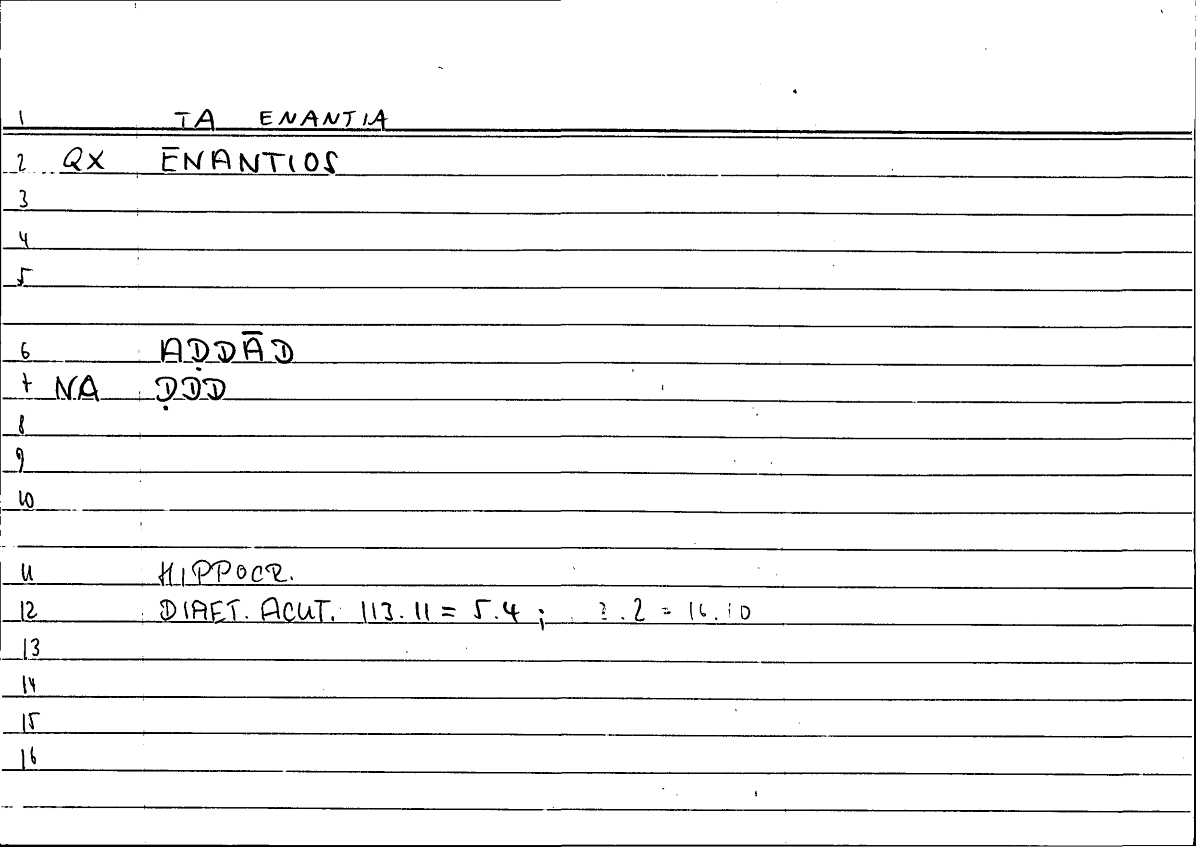 1 TA ENANTIA
2 QX ĒNANTIOS
3
4
5
6 AḌDĀD
7 NA ḌDD
8
9
10
11 HIPPOCR.
12 DIAET. ACUT. 113.11 = 5.4 ; .2 = 16.10
13
14
15
16